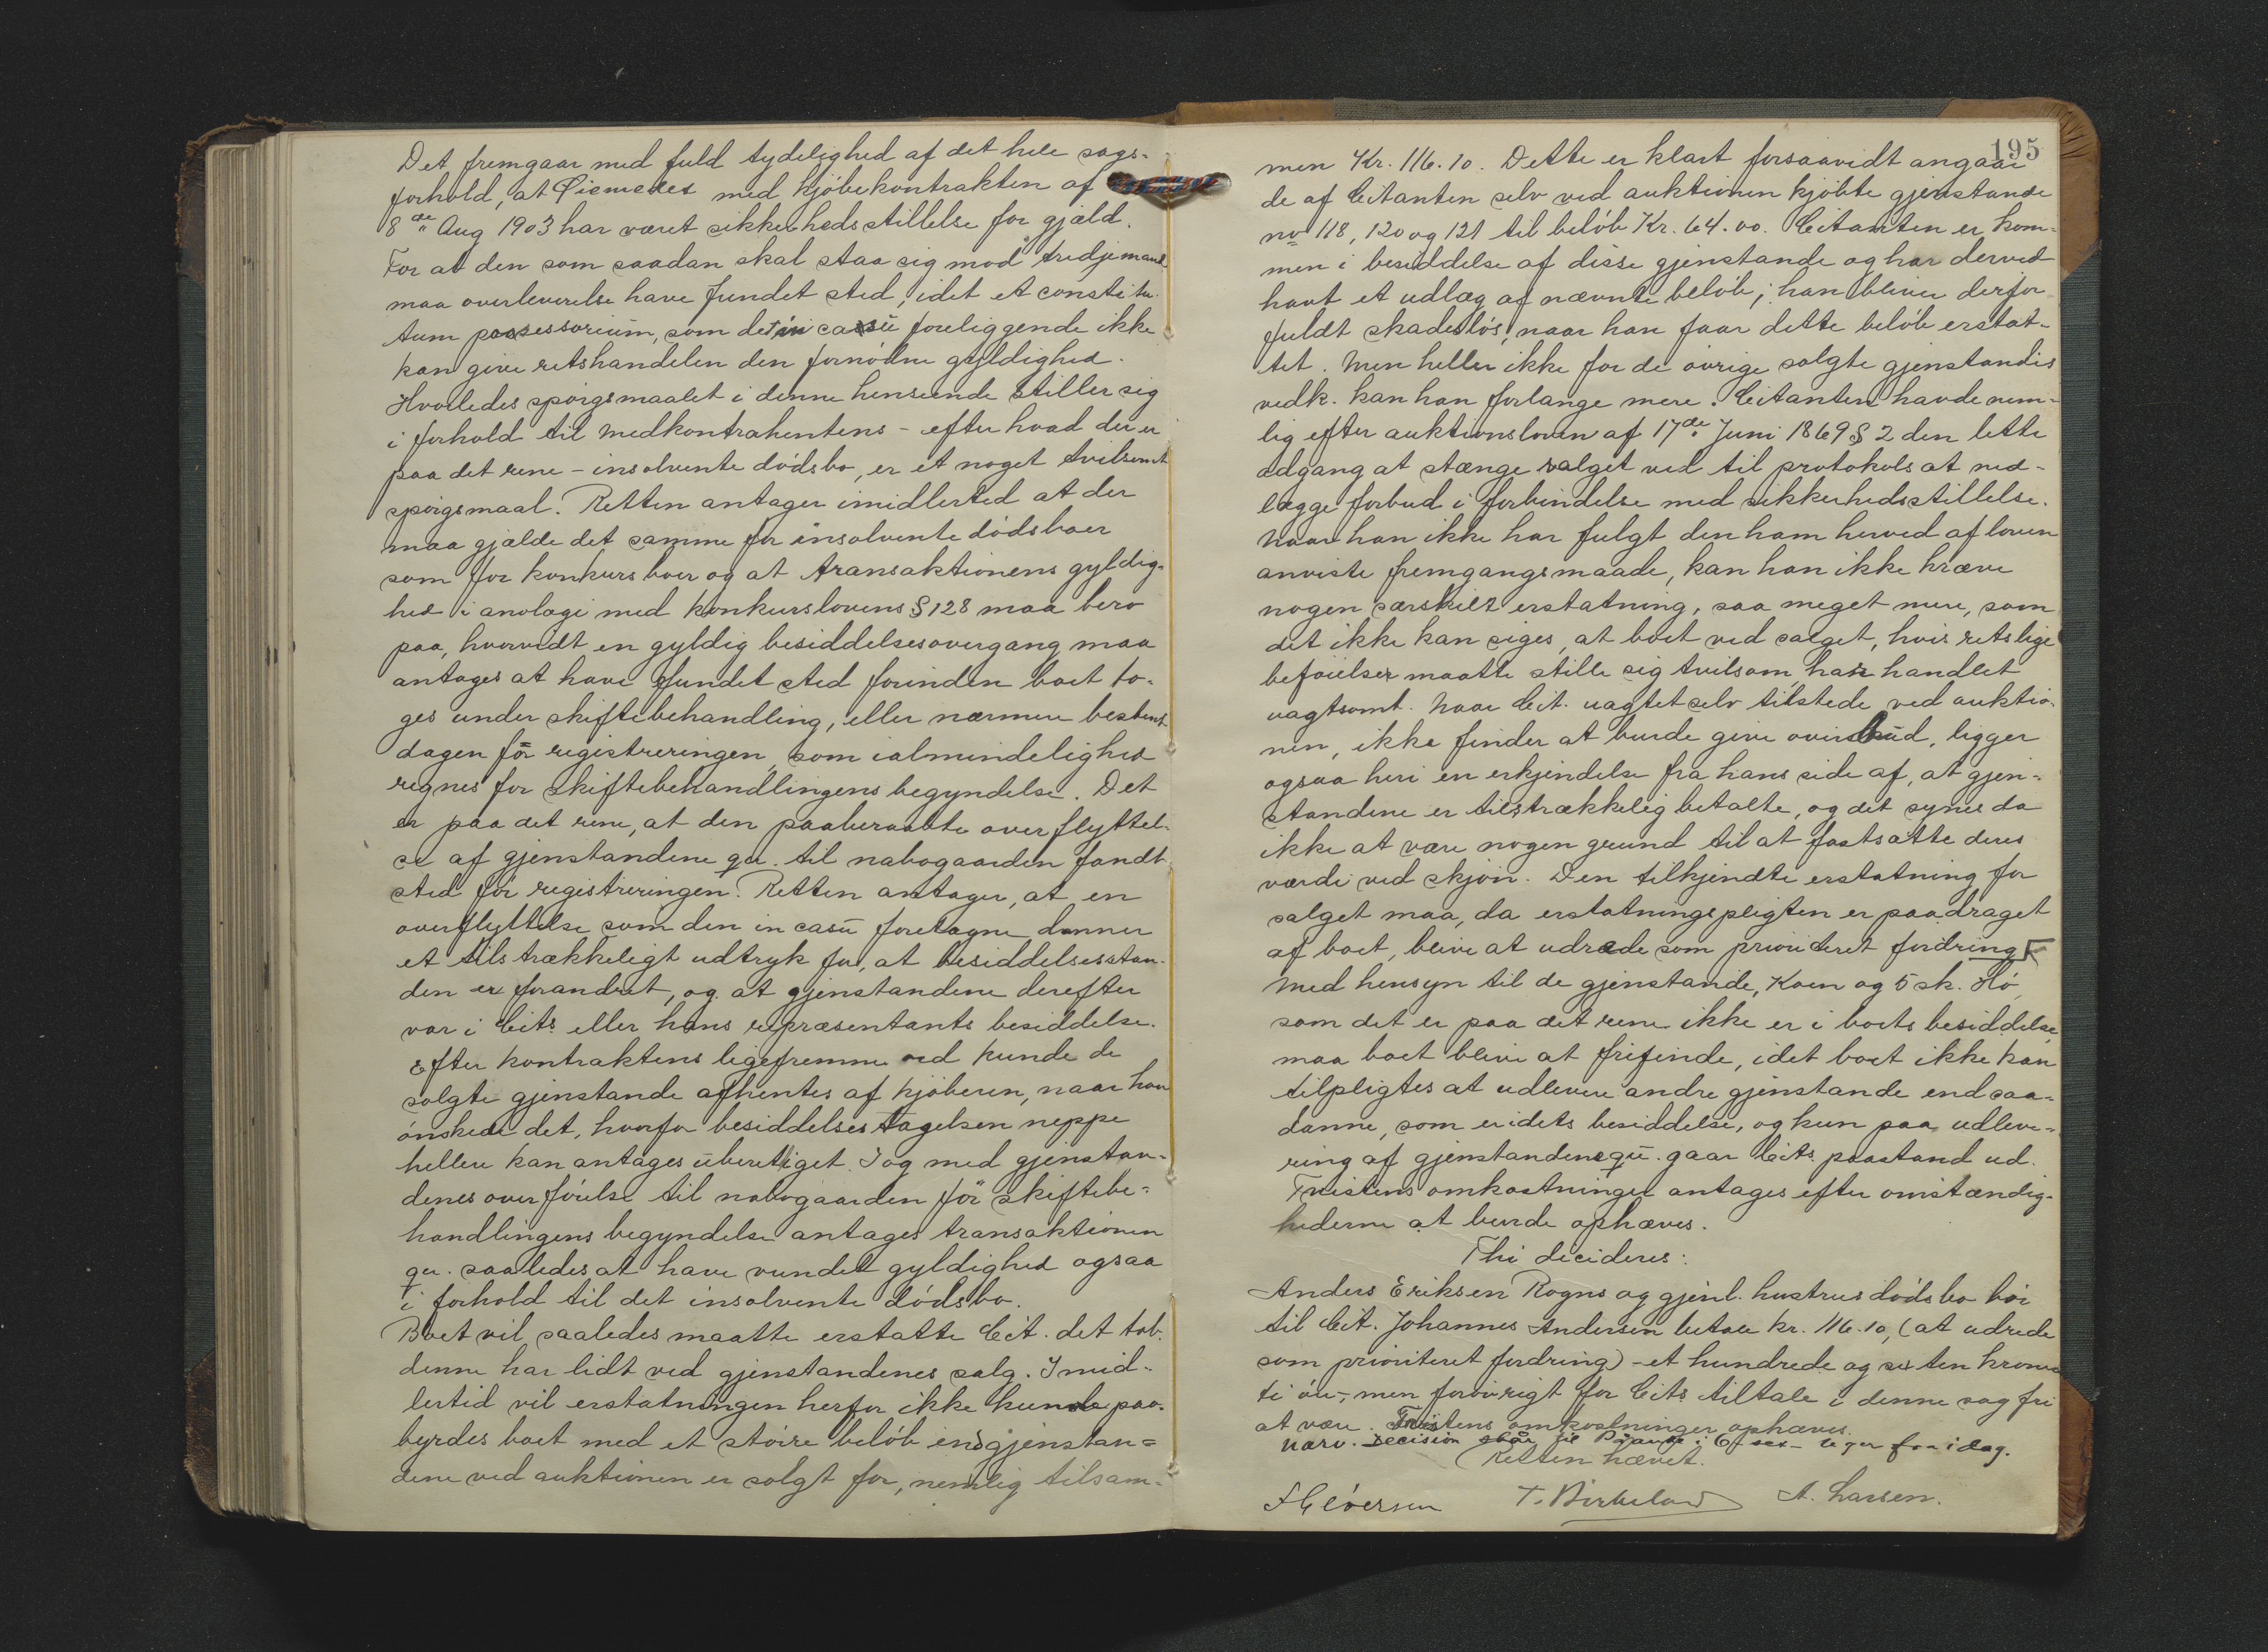 Det fremgaar med fuld tydelighed af det hele sags-
forhold, at Øiemedet med kjøbekontrakten af
8de Aug 1903 har været sikkerhedsstillelse for gjæld.
For at den som saadan skal staa sig mod tredjemand
maa overleverelse have fundet sted, idet et constitu-
tum possessorium, som det in casu foreliggende ikke
kan give retshandelen den fornødne gyldighed.
Hvorledes spørgsmaalet i denne henseende stiller sig
i forhold til medkontrahentens - efter hvad der er
paa det rene - insolvente dødsbo, er et noget tvilsomt
spørgsmaal. Retten antager imidlertid at der
maa gjælde det samme for insolvente dødsboer
som for konkursboer og at transaktionens gyldig-
hed i anologi med konkurslovens § 128 maa bero
paa, hvorvidt en gyldig besiddelsesovergang maa
antages at have fundet sted forinden boet to-
ges under skiftebehandling, eller nærmere bestemt
dagen før registreringen, som ialmindelighed
regnes for skiftebehandlingens begyndelse. Det
er paa det rene, at den paaberaabte overflyttel-
se af gjenstandene qu. til nabogaarden fandt
sted før registreringen. Retten antager, at en
overflyttelse som den in casu foretagne danner
et tilstrækkeligt udtryk for, at besiddelsesstan-
den er forandret, og at gjenstandene derefter
var i Cits eller hans repræsentants besiddelse.
Efter kontraktens ligefremme ord kunde de
solgte gjenstande afhentes af kjøberen, naar han
ønskede det, hvorfor besiddelsestagelsen neppe
hellere kan antages uberettiget. I og med gjenstan-
denes overførelse til nabogaarden før skiftebe-
handlingens begyndelse antages transaktionen
qu. saaledes at have vundet gyldighed ogsaa
i forhold til det insolvente dødsbo.
Boet vil saaledes maatte erstatte Cit. det tab
denne har lidt ved gjenstandenes salg. Imid-
lertid vil erstatningen herfor ikke kunde paa-
byrdes boet med et større beløb end gjenstan-
dene ved auktionen er solgt for, nemlig tilsam-
195
men Kr. 116.10. Dette er klart forsaavidt angaar
de af Citanten selv ved auktionen kjøbte gjenstande
no 118, 120 og 121 til beløb Kr. 64.00. Citanten er kom-
men i besiddelse af disse gjenstande og har derved
havt et udlæg af nævnte beløb; han bliver derfor
fuldt skadesløs, naar han faar dette beløb erstat-
tet. Men heller ikke for de øvrige solgte gjenstandes
vedk. kan han forlange mere. Citanten havde nem-
lig efter auktionsloven af 17de Juni 1869 § 2 den lette
adgang at stænge salget ved til protokols at ned-
lægge forbud i forbindelse med sikkerhedsstillelse.
Naar han ikke har fulgt den ham herved af loven
anviste fremgangsmaade, kan han ikke kræve
nogen særskilt erstatning, saa meget mere, som
det ikke kan siges, at boet ved salget, hvis retslige
beføielser maatte stille sig tvilsom, har handlet
uagtsomt. Naar Cit. uagtet selv tilstede ved auktio-
nen, ikke finder at burde give overbud, ligger
ogsaa heri en erkjendelse fra hans side af, at gjen-
standene er tilstrækkelig betalte, og det synes da
ikke at være nogen grund til at fastsætte deres
værdi ved skjøn. Den tilkjendte erstatning for
salget maa, da erstatningspligten er paadraget
af boet, blive at udrede som prioriteret fordring
Med hensyn til de gjenstande, Koen og 5 sk. Hø,
som det er paa det rene ikke er i boets besiddelse,
maa boet blive at frifinde, idet boet ikke kan
tilpligtes at udlevere andre gjenstande end saa-
danne, som er i dets besiddelse, og kun paa udleve-
ring af gjenstandene qu. gaar Cits paastand ud.
Tvistens omkostninger antages efter omstændig-
hederne at burde ophæves.
Thi decideres:
Anders Eriksen Rogns og gjenl. hustrus dødsbo bør
til Cit. Johannes Andersen betale kr. 116.10, (at udrede
som prioriteret fordring) - et hundrede og sexten kroner
ti øre, - men forøvrigt for Cits tiltale i denne sag fri
at være. Tvistens omkostninger ophæves.
Nærv. Decision til i 6 sex - uger fra idag.
Retten hævet.
Iversen T. Birkeland A. Larsen.